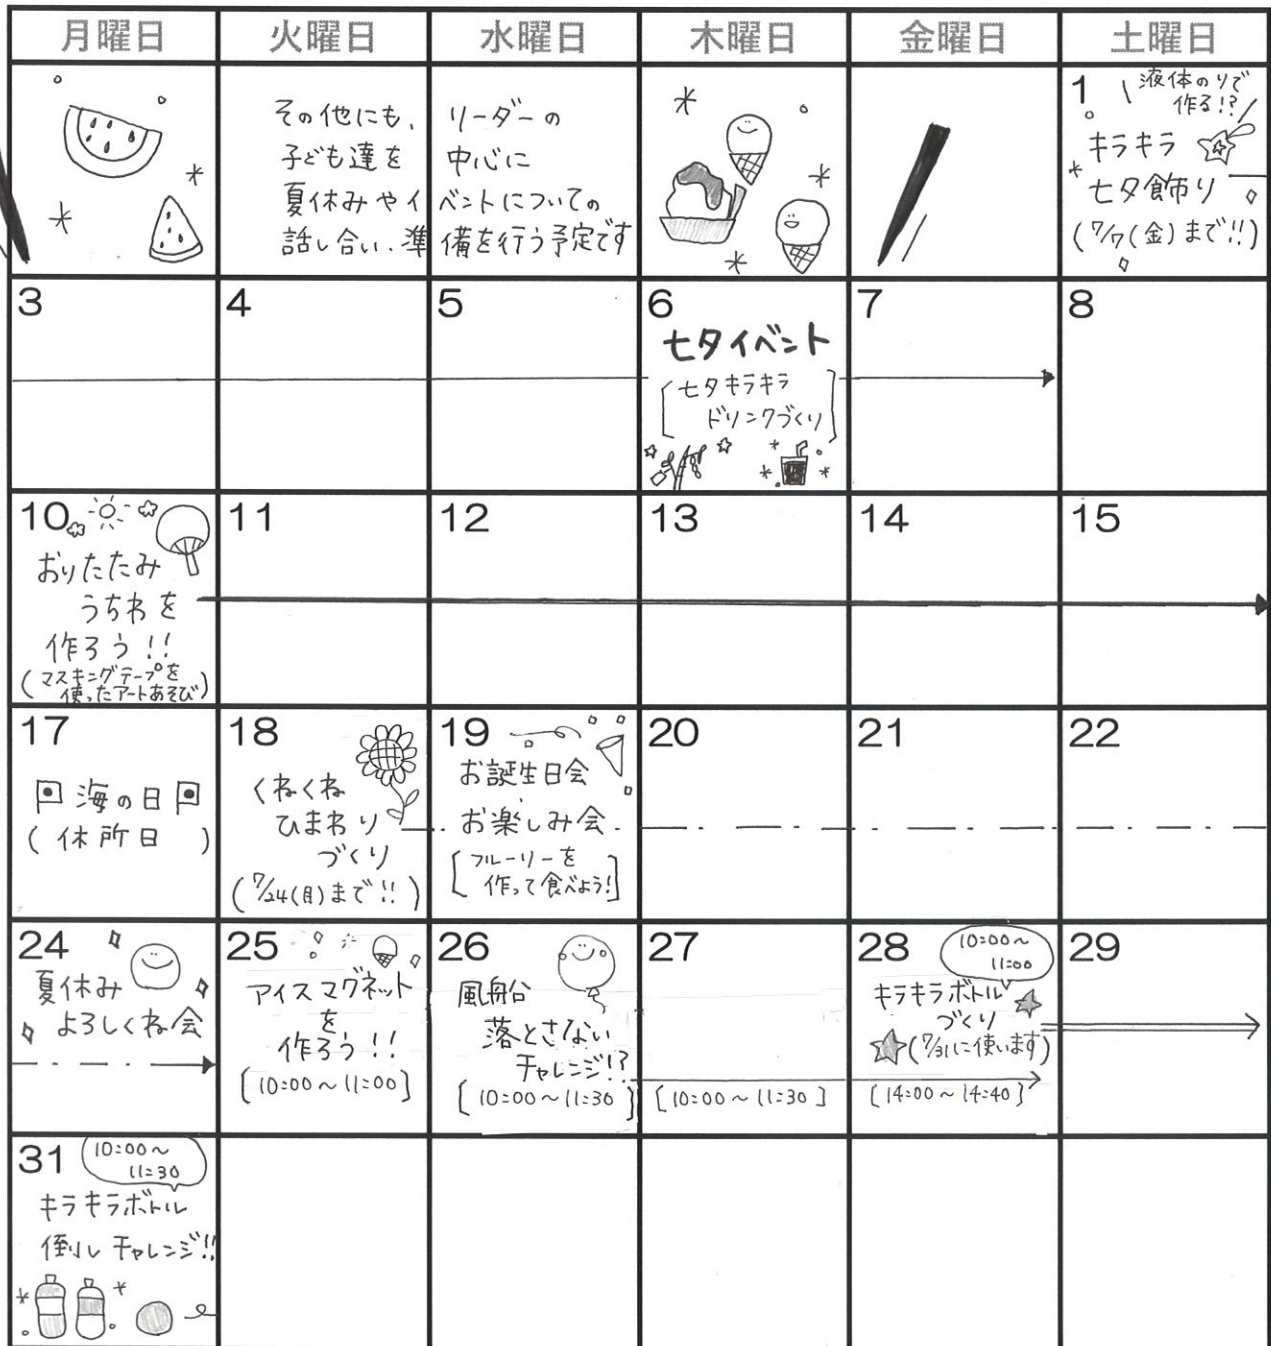 月曜日 火曜日 水曜日 木曜日 金曜日 土曜日
その他にも、リーダーの
子ども達を 中心に
夏休みやイベントについての
話し合い、準備を行う予定です
1
液体のりで
作る!?
キラキラ
七夕飾り
(7/7(金)まで!!)
3
4
5
6
七夕イベント
七夕キラキラ
ドリンクづくり
7
8
10
おりたたみ
うちわを
作ろう!!
(マスキングテープを
使ったアートあそび)
11
12
13
14
15
17
海の日
(休所日)
18
くねくね
ひまわり
づくり
(7/24(月)まで!!)
19
お誕生日会
お楽しみ会
[フルーリーを
作って食べよう!]
20
21
22
24
夏休み
よろしくね会
25
アイスマグネット
を
作ろう!!
[10:00〜11:00]
26
風船
落とさない
チャレンジ!?
[10:00〜11:30]
27
[10:00〜11:30]
28
10:00〜
11:00
キラキラボトル
づくり
(7/31に使います)
[14:00〜14:40]
29
31
10:00〜
11:30
キラキラボトル
倒しチャレンジ!!